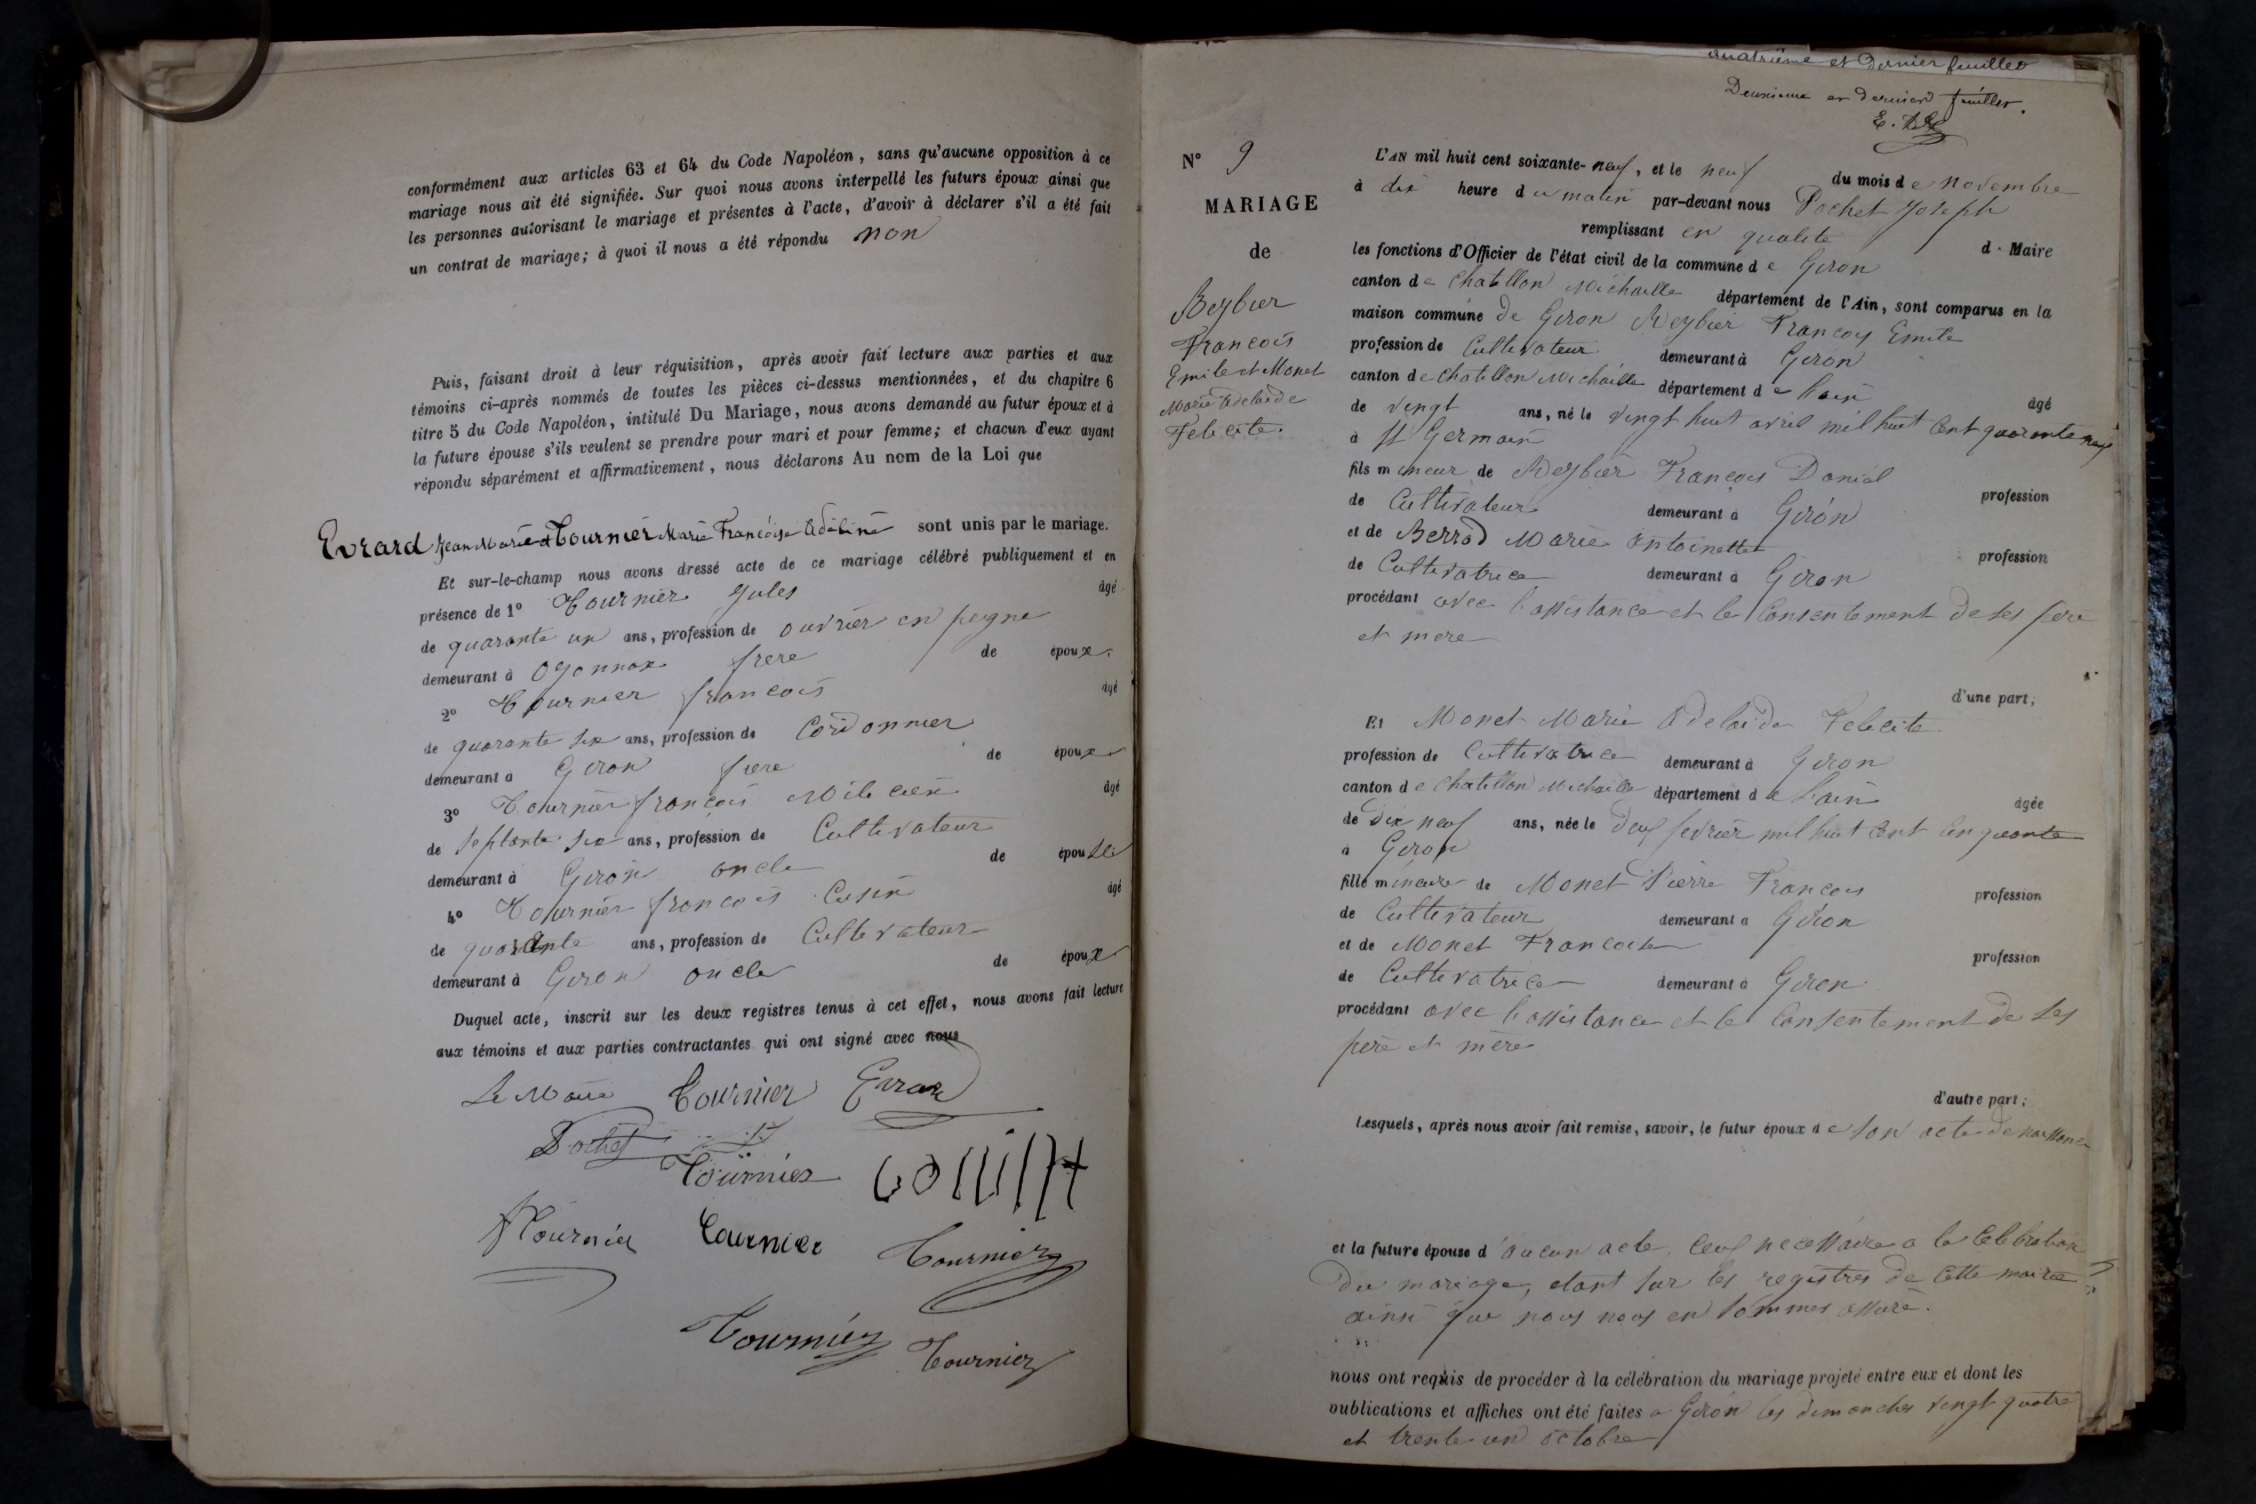 conformément aux articles 63 et 64 du Code Napoléon, sans qu'aucune opposition à ce
mariage nous ait été signifiée. Sur quoi nous avons interpellé les futurs époux ainsi que
les personnes autorisant le mariage et présentes à l'acte, d'avoir à déclarer s'il a été fait
un contrat de mariage; à quoi il nous a été répondu non
Puis, faisant droit à leur réquisition, après avoir fait lecture aux parties et aux
témoins ci-après nommés de toutes les pièces ci-dessus mentionnées, et du chapitre 6
titre 5 du Code Napoléon, intitulé Du Mariage, nous avons demandé au futur époux et à
la future épouse s'ils veulent se prendre pour mari et pour femme; et chacun d'eux ayant
répondu séparément et affirmativement, nous déclarons Au nom de la Loi que
Evrard Jean Marie et Tournier Marie Françoise Adeline sont unis par le mariage.
Et sur-le-champ nous avons dressé acte de ce mariage célébré publiquement et en
présence de 1° Tournier Jules âgé
de quarante un ans, profession de ouvrier en peigne
demeurant à Oyonnax frere de époux
2° Tournier francois âgé
de quarante six ans, profession de Cordonnier
demeurant à Giron frere de époux
3° Tournier françois Milicien âgé
de septante six ans, profession de Cultivateur
demeurant à Giron oncle de épouse
4° Tournier francois Cusin âgé
de quarante ans, profession de Cultivateur
demeurant à Giron oncle de époux
Duquel acte, inscrit sur les deux registres tenus à cet effet, nous avons fait lecture
aux témoins et aux parties contractantes qui ont signé avec nous
Le Maire Tournier Evrard
Pochet
Tournier
Tournier Tournier Tournier
Tournier Tournier
quatrième et Dernier feuillet
Deuxieme et dernier feuillet.
N° 9
MARIAGE
de
Reybier
Francois
Emile et Monet
Marie Adelaide
Felecite.
L'AN mil huit cent soixante-neuf, et le neuf du mois de novembre
à dix heure du matin par-devant nous Pochet Joseph
remplissant en qualite d Maire
les fonctions d'Officier de l'état civil de la commune de Giron
canton de Chatillon Michaille département de l'Ain, sont comparus en la
maison commune de Giron Reybier Francois Emile
profession de Cultivateur demeurant à Giron
canton de Chatillon Michaille département de l'ain âgé
de vingt ans, né le vingt huit avril mil huit Cent quarante neuf
à St Germain
fils mineur de Reybier François Daniel profession
de Cultivateur demeurant à Giron
et de Berrod Marie Antoinette profession
de Cultivatrice demeurant à Giron
procédant avec l'assistance et le Consentement de ses pere
et mere
d'une part;
Et Monet Marie Adelaide Felecite
profession de Cultivatrice demeurant à Giron
canton de Chatillon Michaille département de l'ain âgée
de Dix neuf ans, née le Deux fevrier mil huit Cent Cinquante
à Giron
fille mineure de Monet Pierre Francois profession
de Cultivateur demeurant à Giron
et de Monet Francoise profession
de Cultivatrice demeurant à Giron
procédant avec l'assistance et le Consentement de ses
pere et mère
d'autre part;
Lesquels, après nous avoir fait remise, savoir, le futur époux de son acte de naissance
et la future épouse d'aucun acte, Ceux necessaire a la Celebration
Du mariage, etant sur les registres de Cette mairie
ainsi que nous nous en sommes assuré.
nous ont requis de procéder à la célébration du mariage projeté entre eux et dont les
publications et affiches ont été faites a Giron les dimanches vingt quatre
et trente un octobre